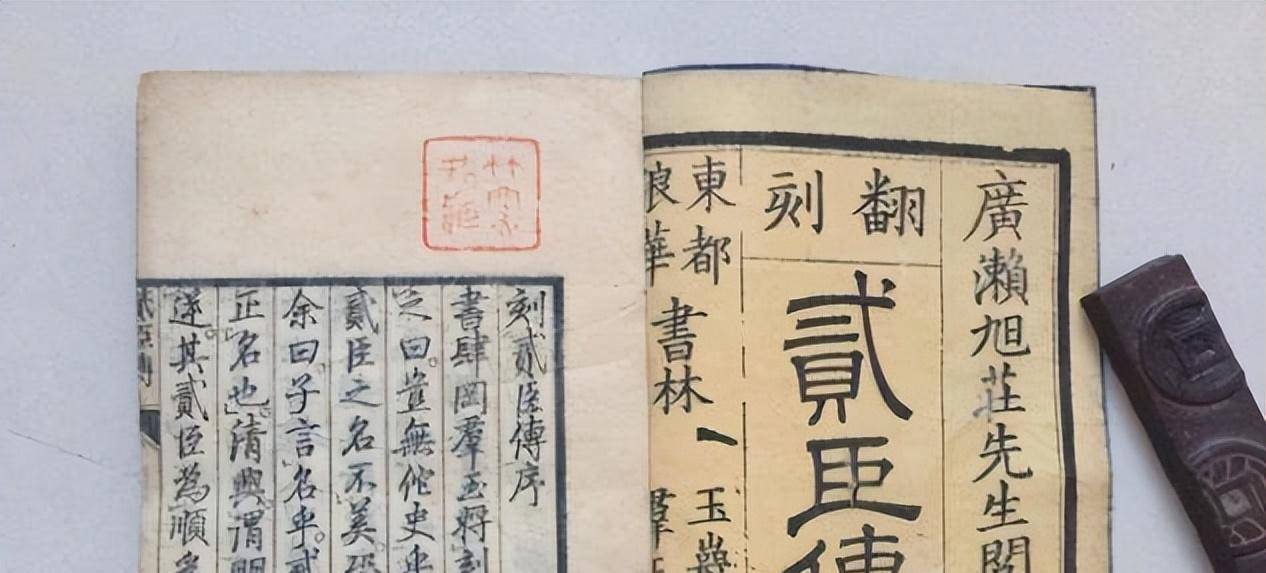 廣瀨旭莊先生閱
翻刻
貳臣傳
東都
浪華
書林
玉巖
羣玉
刻貳臣傳序
書肆岡羣玉將刻
之曰。豈無佗史乎
貳臣之名不美
余曰。子言名乎。貳
正名也。清興。謂明
遂其貳臣為順
貳臣傳